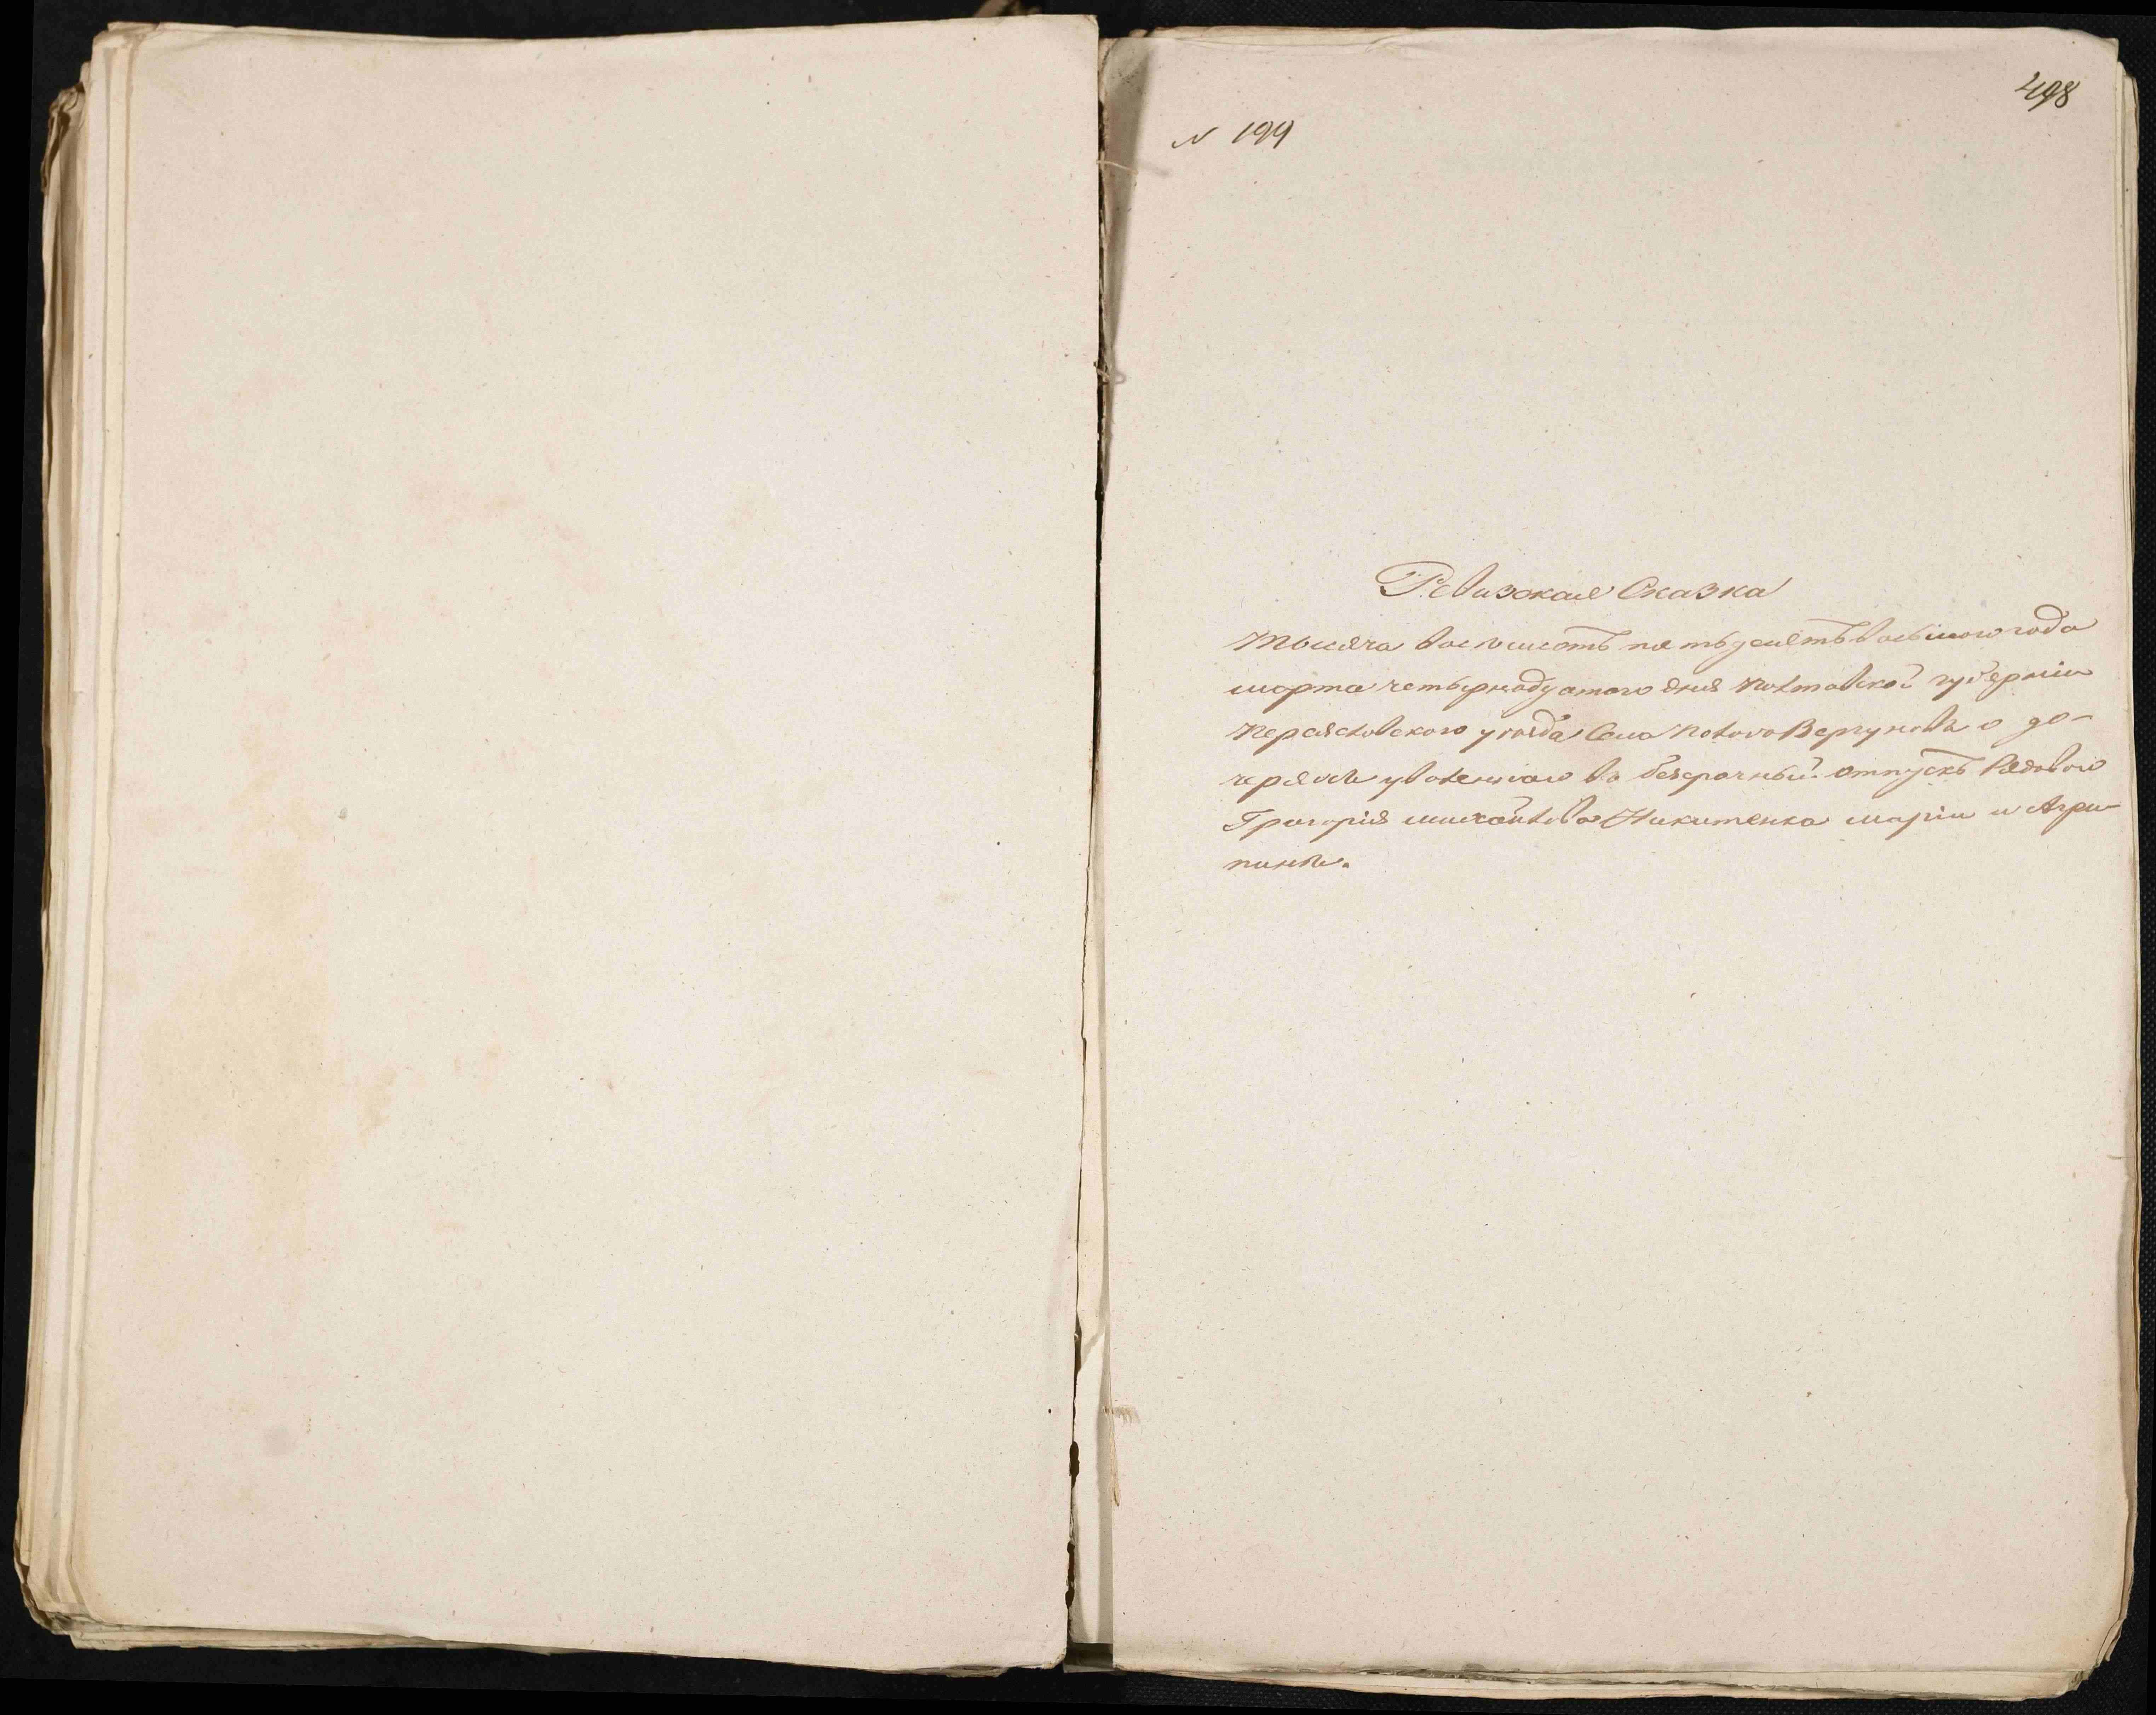 498
N 199
Ревизская Сказка
Тысяча восемсотъ пятьдесятъ восьмого года
марта четырнадцатого дня Полтавской губерніи
Переяславского уезда Села Вергуновъ о до-
черяхъ уволеного въ безсрочный отпускъ Рядового
Григорія михайлова Никитенка маріи и Агри-
пинѣ.